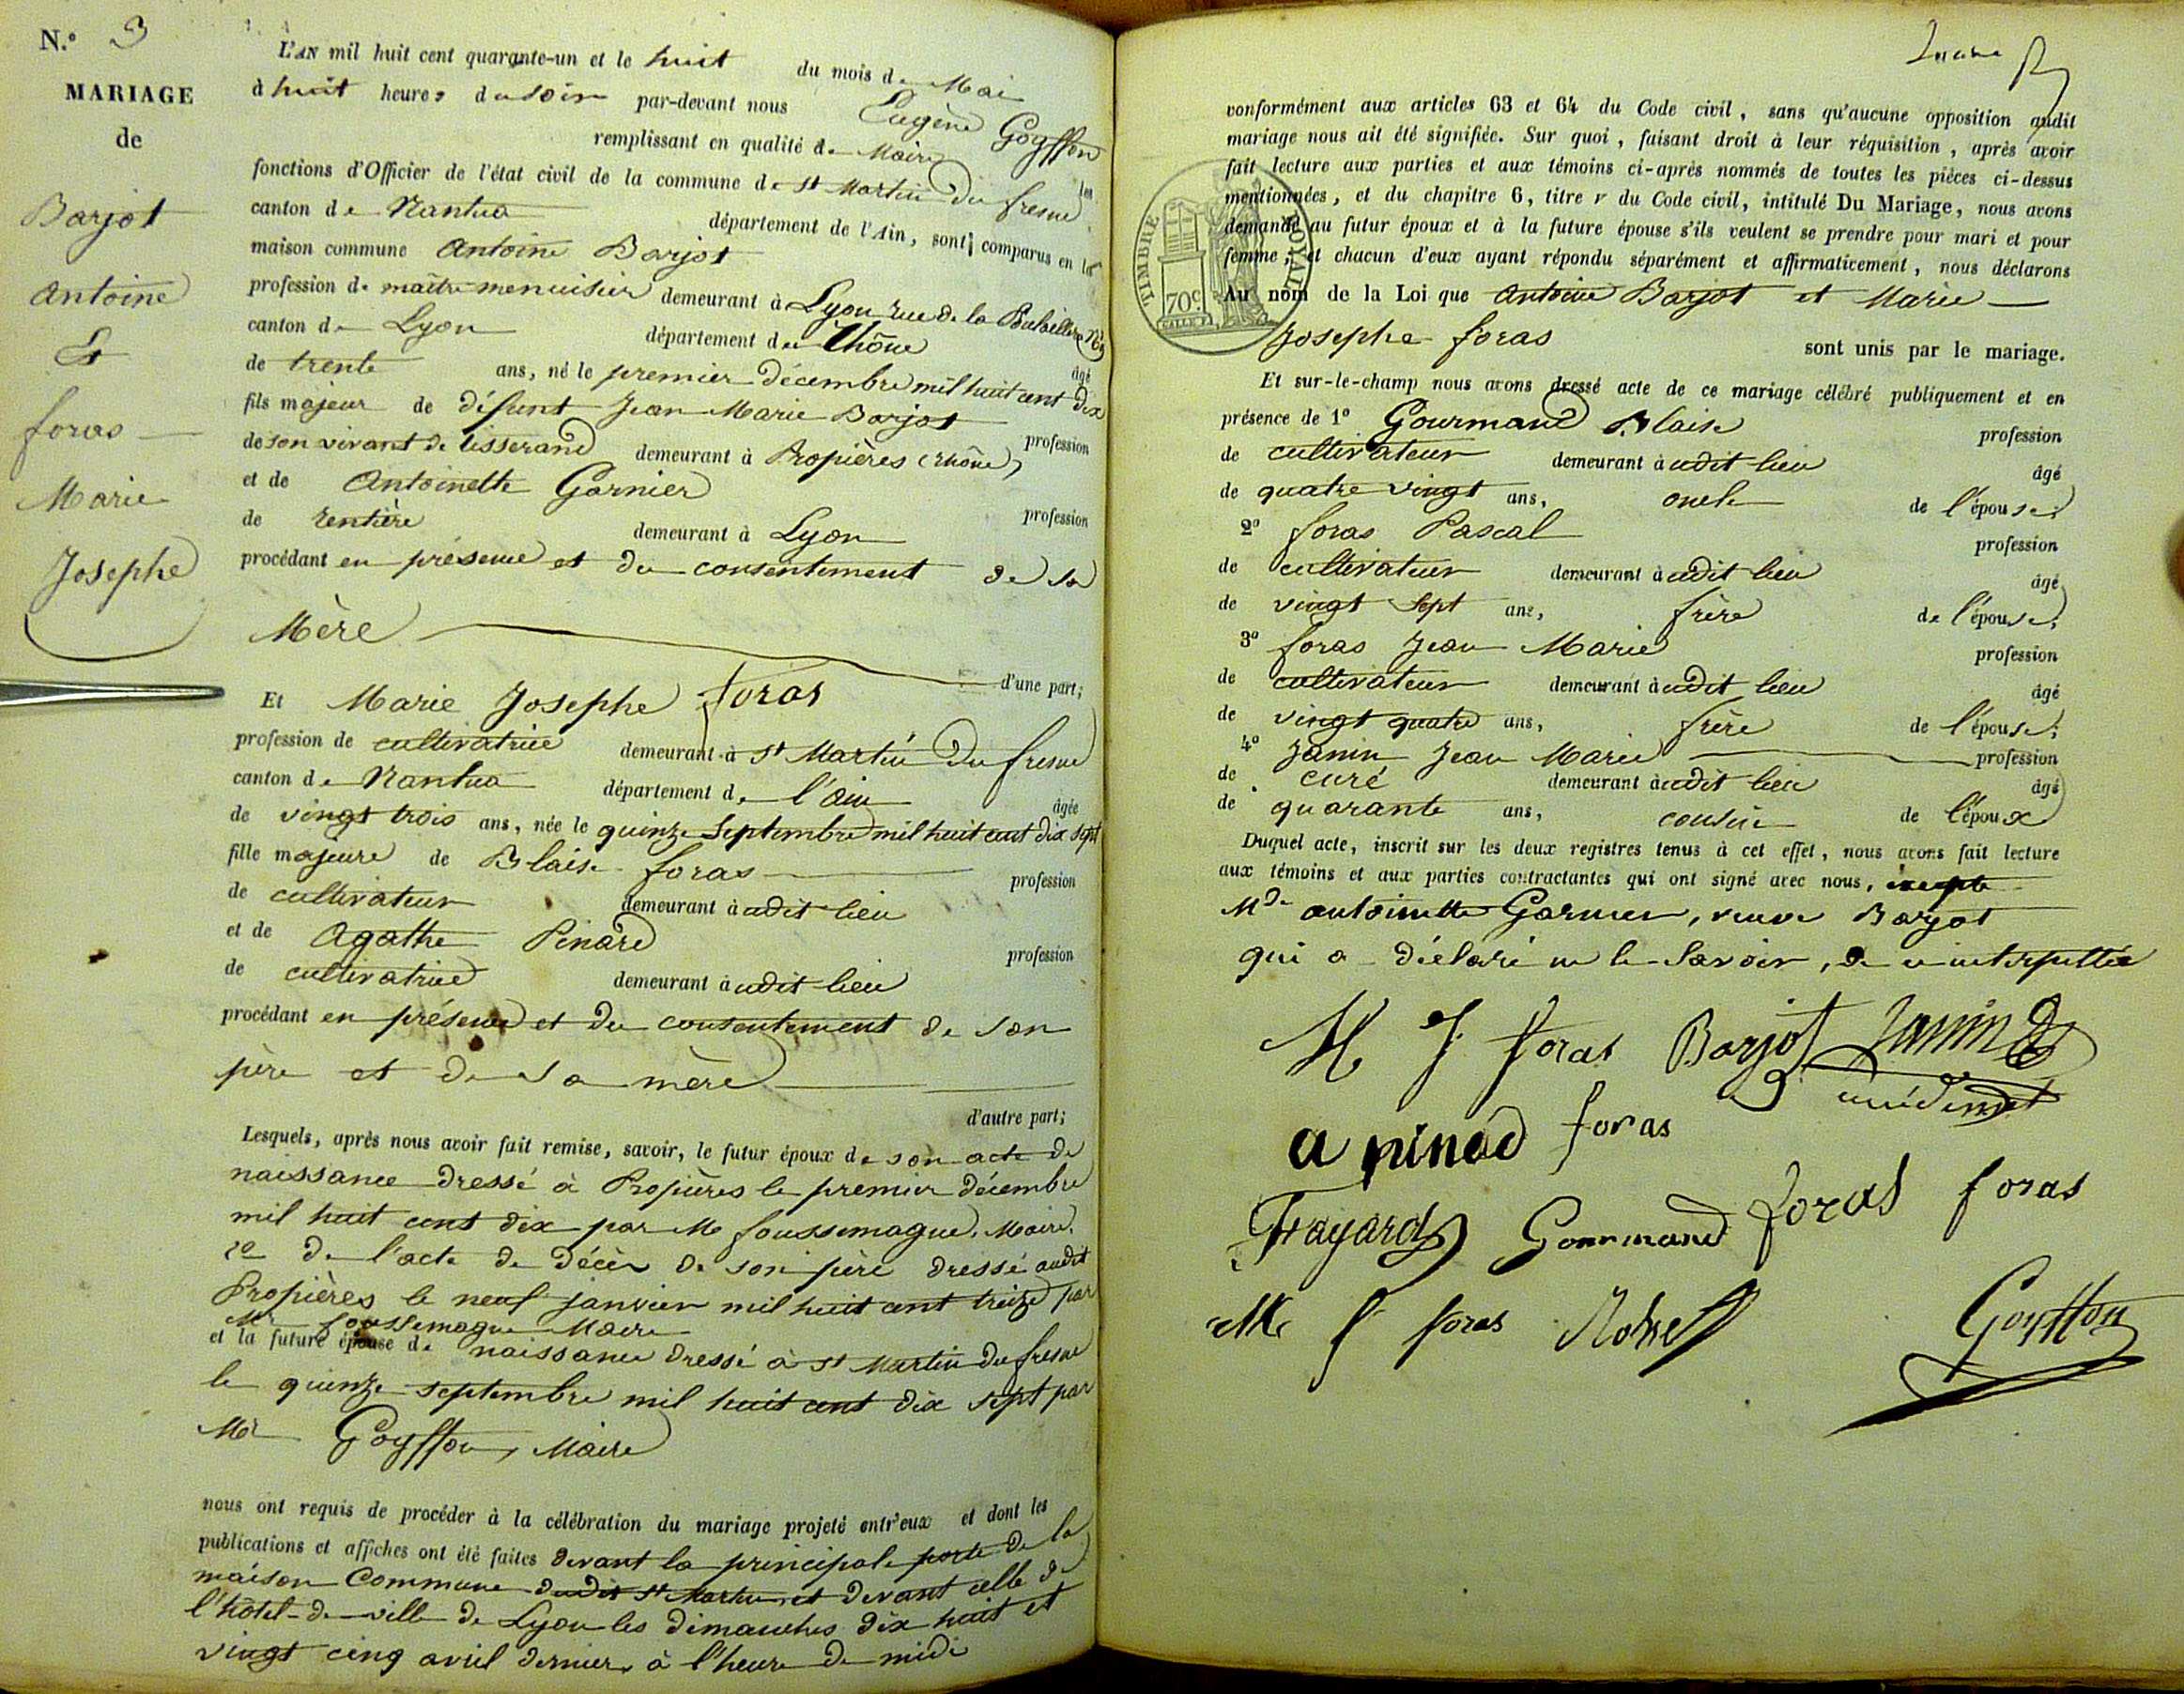 N.° 3
MARIAGE
de
Barjot
Antoine
Et
foras
Marie
Josephe
L'AN mil huit cent quarante-un et le huit du mois de Mai
à huit heures du soir par-devant nous Eugène Goyffon
remplissant en qualité de Maire les
fonctions d'Officier de l'état civil de la commune de St Martin du fresne
canton de Nantua département de l'Ain, sont comparus en la
maison commune Antoine Barjot
profession de maître menuisier demeurant à Lyon rue de la
canton de Lyon département du Rhône âgé
de trente ans, né le premier décembre mil huit cent dix
fils majeur de défunt Jean Marie Barjot profession
de son vivant de tisserand demeurant à Propières (Rhône)
et de Antoinette Garnier profession
de rentière demeurant à Lyon
procédant en présence et du consentement de sa
Mère d'une part;
Et Marie Josephe foras
profession de cultivatrice demeurant à St Martin du fresne
canton de Nantua département de l'ain âgée
de vingt trois ans, née le quinze septembre mil huit cent dix sept
fille majeure de Blaise foras profession
de cultivateur demeurant à udit lieu
et de Agathe Pinard profession
de cultivatrice demeurant à udit lieu
procédant en présence et du consentement de son
père et de sa mère
d'autre part;
Lesquels, après nous avoir fait remise, savoir, le futur époux de son acte de
naissance dressé à Propières le premier décembre
mil huit cent dix par Mr foussemagne, Maire.
2° de l'acte de décès de son père dressé audit
Propières le neuf janvier mil huit cent treize par
Mr foussemagne Maire
et la future épouse de naissance dressé à St Martin du fresne
le quinze septembre mil huit cent dix sept par
Mr Goyffon, Maire
nous ont requis de procéder à la célébration du mariage projeté entr'eux et dont les
publications et affiches ont été faites devant la principale porte de la
maison Commune dudit St Martin et devant celle de
l'hôtel-de-ville de Lyon les dimanches dix huit et
vingt cinq avril dernier à l'heure de midi
conformément aux articles 63 et 64 du Code civil, sans qu'aucune opposition audit
mariage nous ait été signifiée. Sur quoi, faisant droit à leur réquisition, après avoir
fait lecture aux parties et aux témoins ci-après nommés de toutes les pièces ci-dessus
mentionnées, et du chapitre 6, titre v du Code civil, intitulé Du Mariage, nous avons
demandé au futur époux et à la future épouse s'ils veulent se prendre pour mari et pour
femme; et chacun d'eux ayant répondu séparément et affirmativement, nous déclarons
Au nom de la Loi que Antoine Barjot et Marie
Josephe foras sont unis par le mariage.
TIMBRE ROYAL
70c.
Et sur-le-champ nous avons dressé acte de ce mariage célébré publiquement et en
présence de 1° Gourmand Blaise profession
de cultivateur demeurant à udit lieu âgé
de quatre vingt ans, oncle de l'épouse;
2° foras Pascal profession
de cultivateur demeurant à udit lieu âgé
de vingt sept ans, frère de l'épouse;
3° foras Jean Marie profession
de cultivateur demeurant à udit lieu âgé
de vingt quatre ans, frère de l'épouse;
4° Janin Jean Marie profession
de curé demeurant à udit lieu âgé
de quarante ans, cousin de l'époux
Duquel acte, inscrit sur les deux registres tenus à cet effet, nous avons fait lecture
aux témoins et aux parties contractantes qui ont signé avec nous, excepté
Mde antoinette Garnier, veuve Barjot
qui a déclaré ne le savoir, de ce interpellée
M J foras Barjot Janin
a pinad foras
Fayard Gourmand foras foras
foras Goyffon